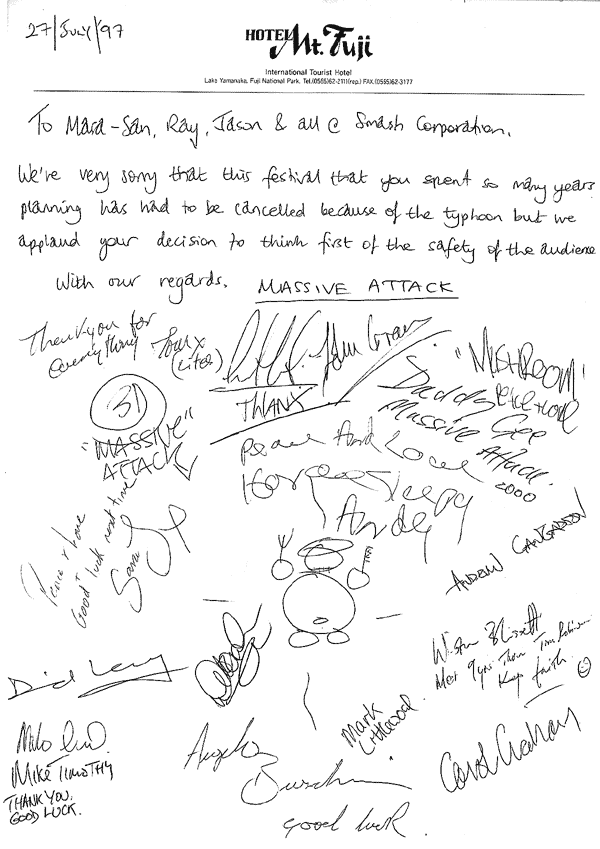 27/July/'97
HOTEL Mt. Fuji
International Tourist Hotel
Lake Yamanaka, Fuji National Park. Tel.(0555)62-2111(rep.) FAX.(0555)62-3177
To Masa-San, Ray, Jason & all @ Smash Corporation.
We've very sorry that this festival that you spent so many years
planning has had to be cancelled because of the typhoon but we
applaud your decision to think first of the safety of the audience
With our regards. MASSIVE ATTACK
Thankyou for
everything
(Lites)
THANX
"MUSHROOM"
3D
"MASSIVE"
ATTACK
Daddy Gee
Massive Attack
2000
Peace And Love
Horace
Andy
Peace & love
Good luck next time
Sara
ANDREW GANGADEEN
Winston Blissett
Keep faith.
David
Mark
Littlewood
Milo
MIKE TIMOTHY
THANK YOU.
GOOD LUCK.
Angelo
Bruschini
good luck.
Carol